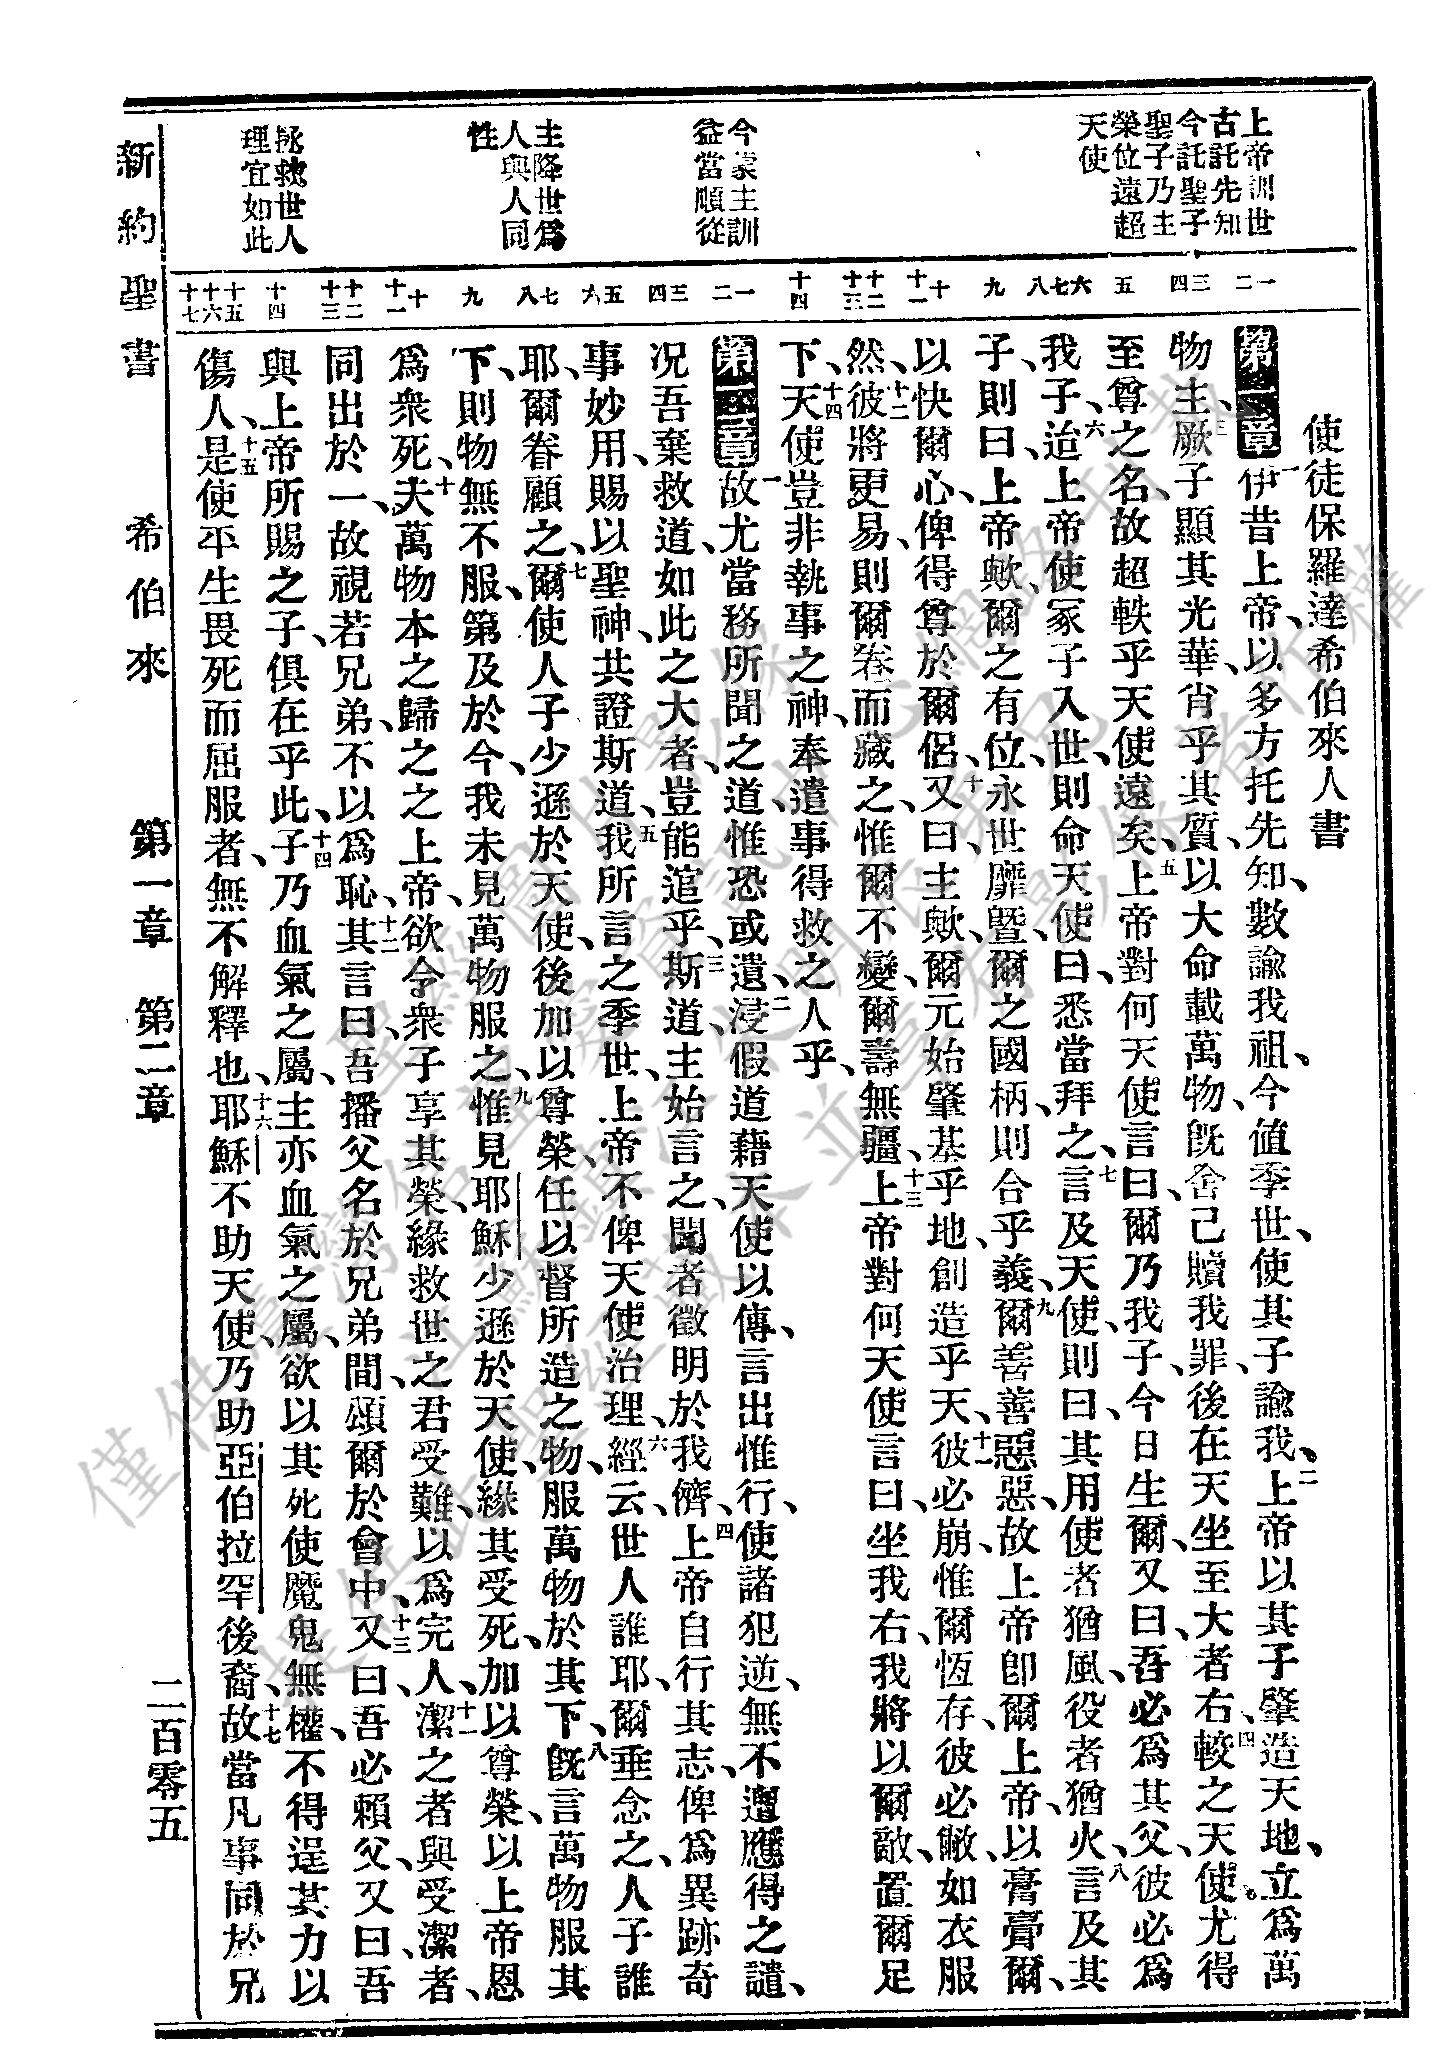 上帝訓世
古託先知
今託聖子
聖子乃主
榮位遠超
天使
今蒙主訓
益當順從
主降世爲
人與人同
性
拯救世人
理宜如此
一 二 三 四 五 六 七 八 九 十 十一 十二 十三 十四 一 二 三 四 五 六 七 八 九 十 十一 十二 十三 十四 十五 十六 十七
使徒保羅達希伯來人書
第一章 一伊昔上帝、以多方托先知、數諭我祖、今値季世、使其子諭我、二上帝以其子肇造天地、立爲萬
物主、三厥子顯其光華、肖乎其質、以大命載萬物、旣舍己贖我罪、後在天坐至大者右、四較之天使。尤得
至尊之名、故超軼乎天使遠矣、五上帝對何天使言曰、爾乃我子、今日生爾、又曰、吾必爲其父、彼必爲
我子、六迨上帝使冢子入世、則命天使曰、悉當拜之、七言及天使、則曰、其用使者猶風、役者猶火、八言及其
子、則曰、上帝歟、爾之有位、永世靡曁、爾之國柄、則合乎義、九爾善善惡惡、故上帝卽爾上帝、以膏膏爾、
以快爾心、俾得尊於爾侶、十又曰、主歟、爾元始肇基乎地、創造乎天、十一彼必崩、惟爾恆存、彼必敝如衣服
然、十二彼將更易、則爾卷而藏之、惟爾不變、爾壽無疆、十三上帝對何天使言曰、坐我右、我將以爾敵、置爾足
下、十四天使豈非執事之神、奉遣事得救之人乎、
第二章 一故尤當務所聞之道、惟恐或遺、二浸假道藉天使以傳、言出惟行、使諸犯逆、無不遭應得之譴、
况吾棄救道、如此之大者、豈能逭乎、三斯道、主始言之、聞者徵明於我儕、四上帝自行其志、俾爲異跡奇
事妙用、賜以聖神、共證斯道、五我所言之季世、上帝不俾天使治理、六經云、世人誰耶、爾垂念之、人子誰
耶、爾眷顧之、七爾使人子少遜於天使、後加以尊榮、任以督所造之物、服萬物於其下、八旣言萬物服其
下、則物無不服、第及於今、我未見萬物服之、九惟見耶穌少遜於天使、緣其受死、加以尊榮、以上帝恩
爲衆死、十夫萬物本之歸之之上帝、欲令衆子享其榮、緣救世之君受難、以爲完人、十一潔之者、與受潔者、
同出於一、故視若兄弟、不以爲恥、十二其言曰、吾播父名於兄弟間、頌爾於會中、十三又曰、吾必賴父、又曰、吾
與上帝所賜之子、俱在乎此、十四子乃血氣之屬、主亦血氣之屬、欲以其死、使魔鬼無權、不得逞其力以
傷人、十五是使平生畏死而屈服者、無不解釋也、十六耶穌不助天使、乃助亞伯拉罕後裔、十七故當凡事同於兄
新約聖書 希伯來 第一章 第二章 二百零五